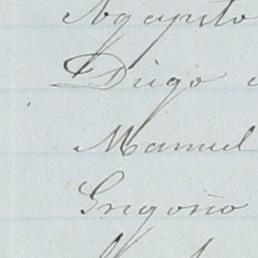 Agapito
Diego
Manuel
Gregorio